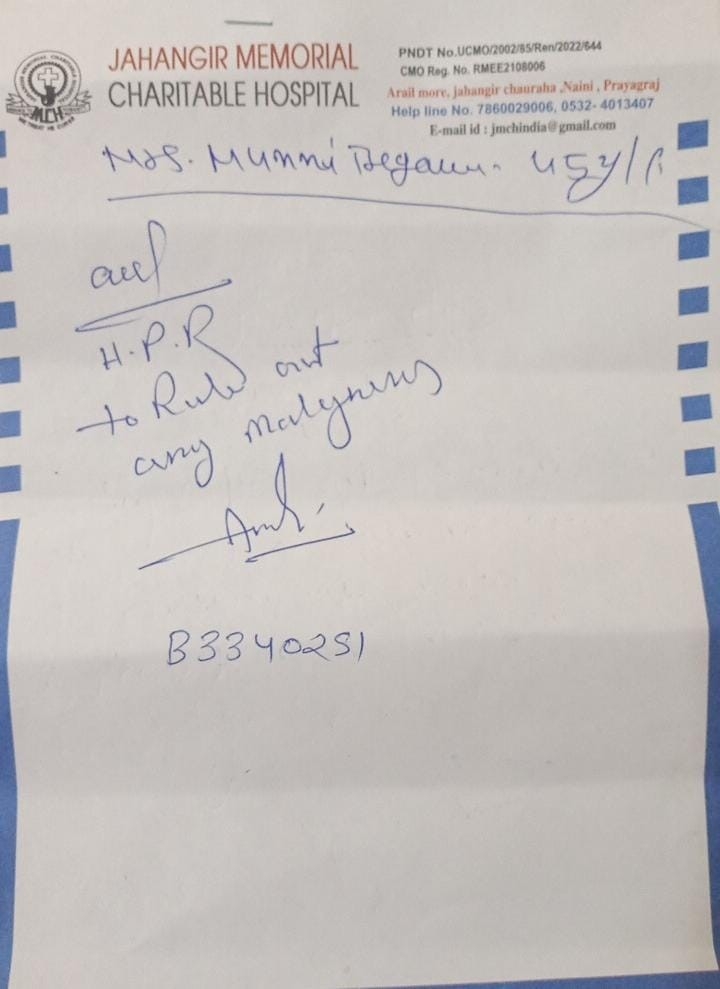 JAHANGIR MEMORIAL
CHARITABLE HOSPITAL
PNDT No.UCMO/2002/85/Ren/2022/644
CMO Reg. No. RMEE2108006
Arail more, jahangir chauraha ,Naini , Prayagraj
Help line No. 7860029006, 0532- 4013407
E-mail id : jmchindia@gmail.com
JMCH
Mrs. Munni Begam. 45y/
H.P.R
to Rule out
any
B3340251